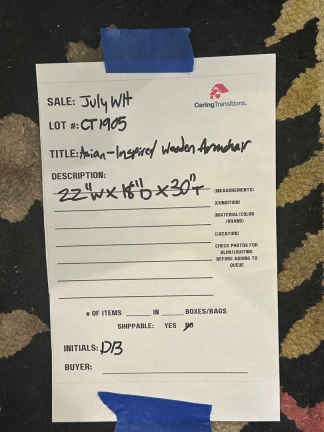 SALE: July WH
CaringTransitions.
LOT #: CT1905
TITLE: Asian-Inspired Wooden Armchair
DESCRIPTION:
22"W x 18"D x 30"T
(MEASUREMENTS)
(CONDITION)
(MATERIAL/COLOR
/BRAND)
(LOCATION)
CHECK PHOTOS FOR
BEFORE ADDING TO
QUEUE
# OF ITEMS ____ IN ____ BOXES/BAGS
SHIPPABLE: YES NO
INITIALS: DB
BUYER: